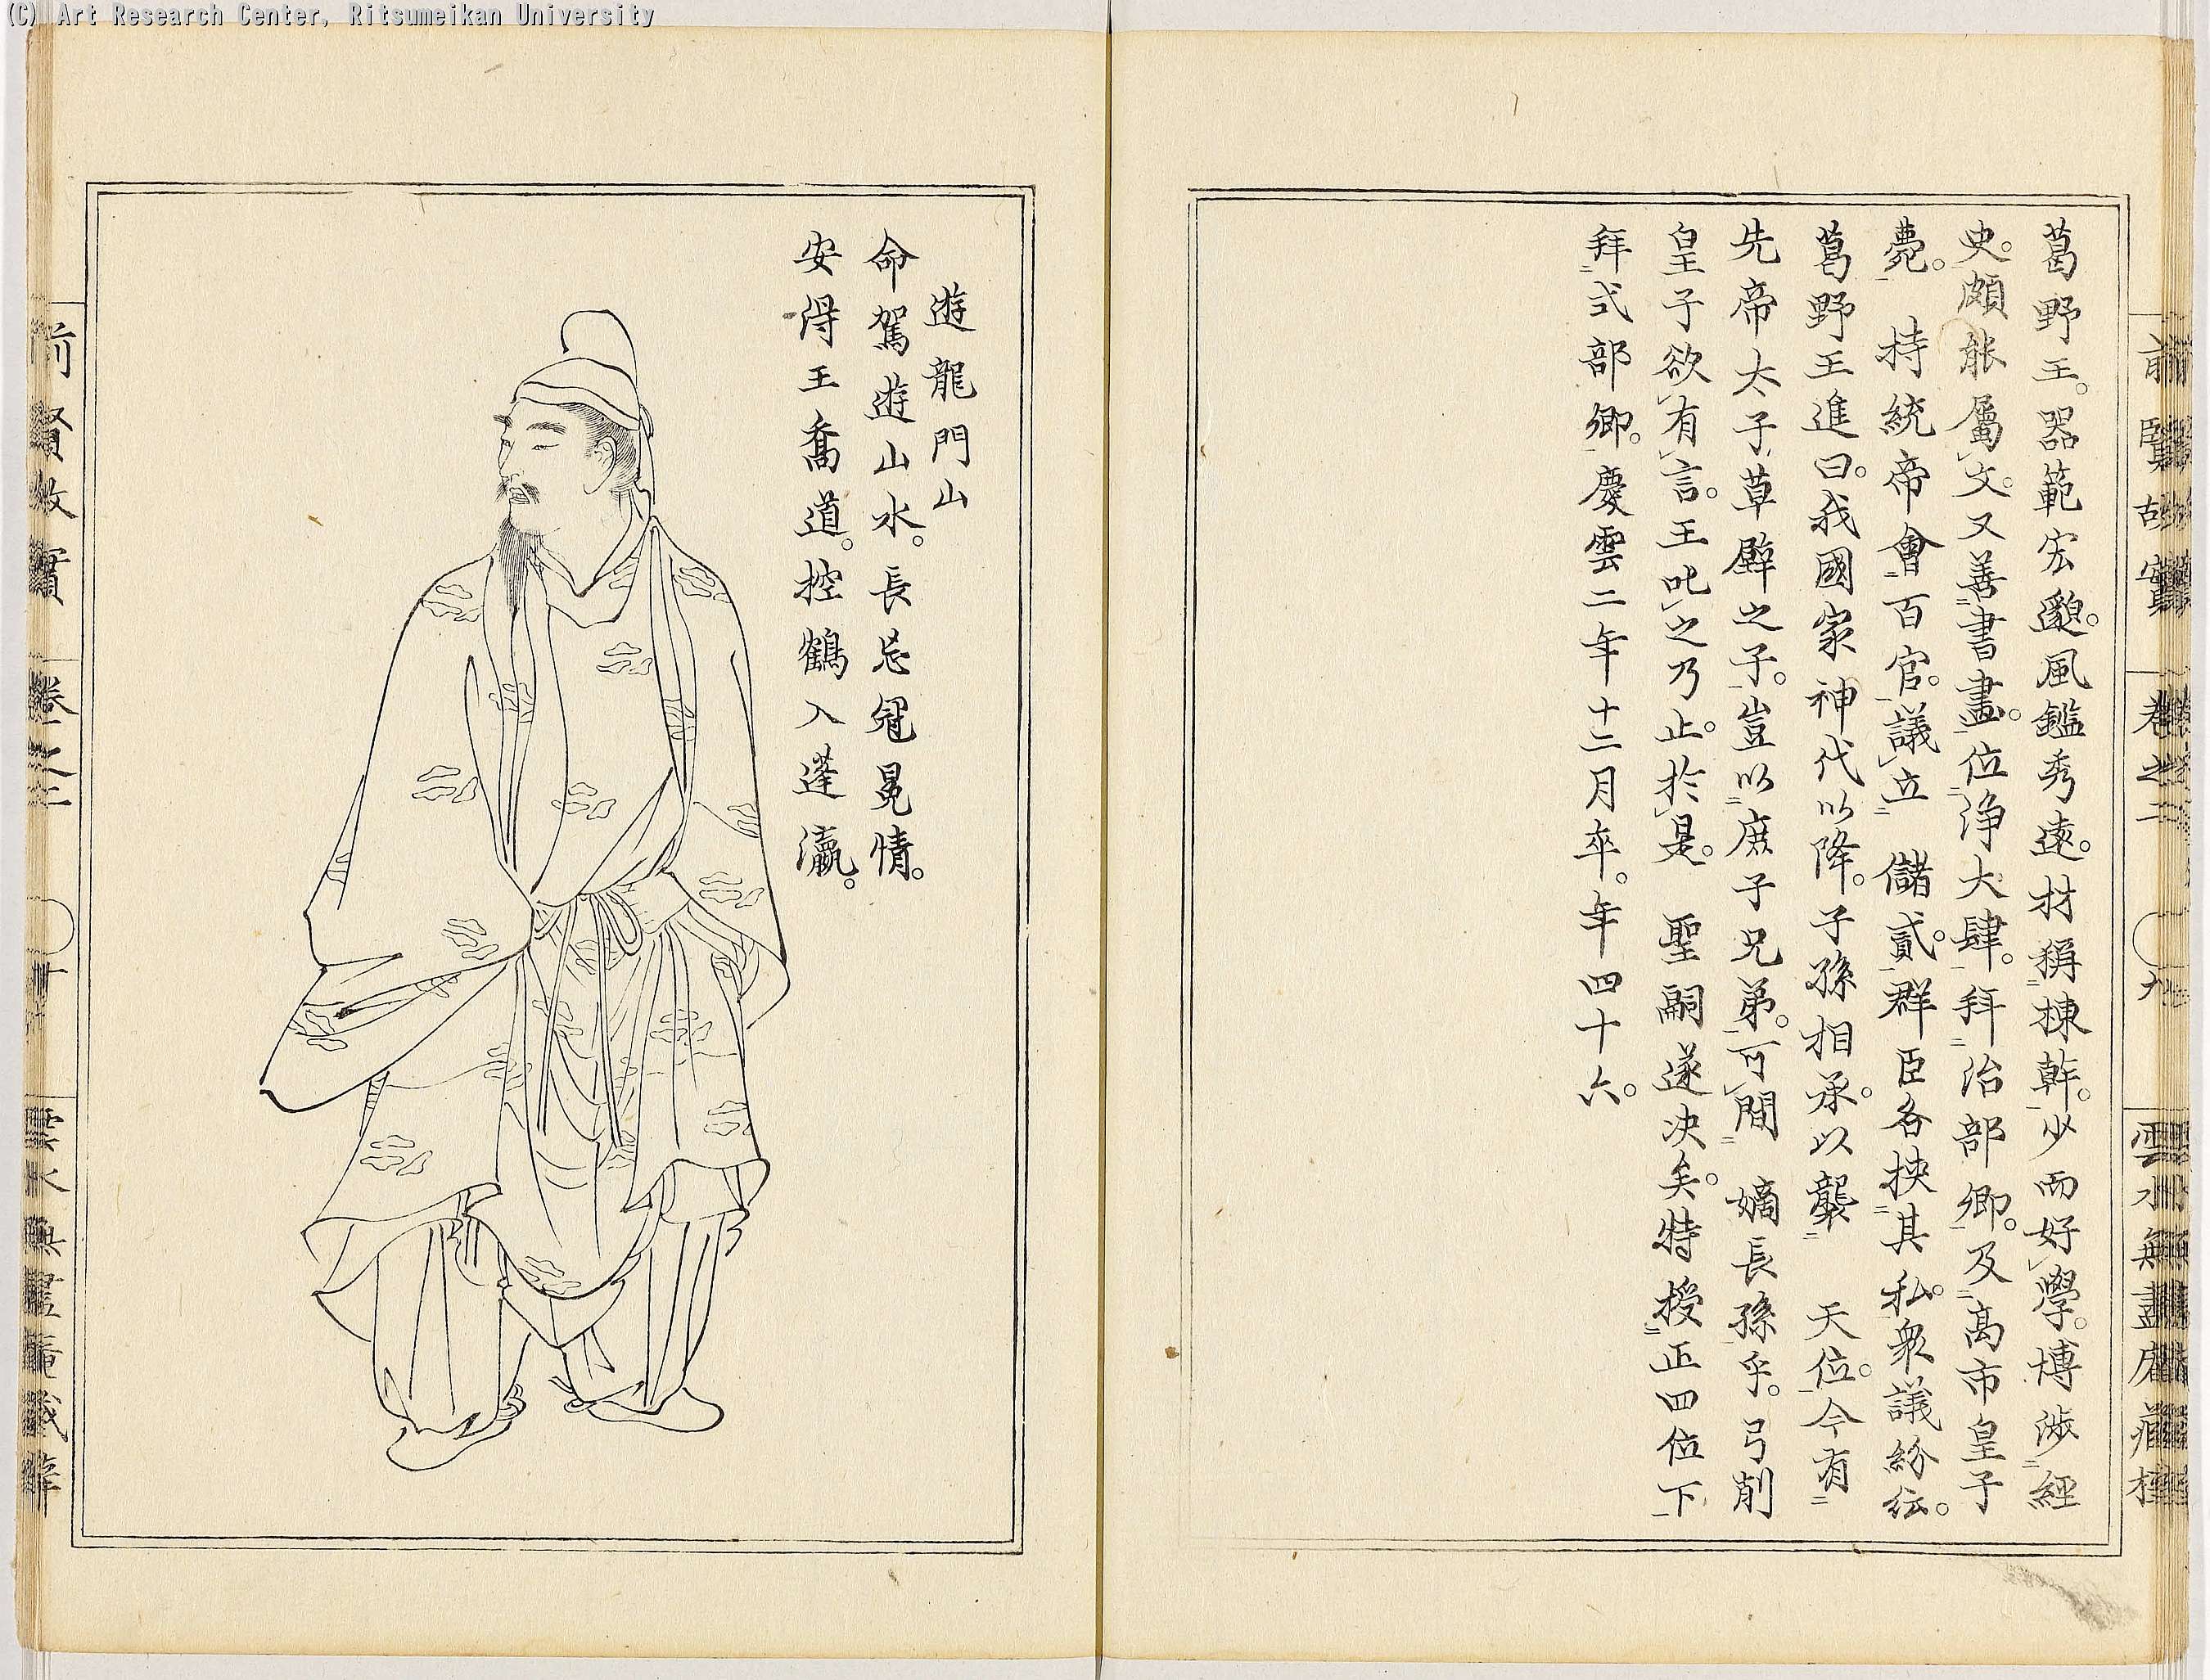 (C) Art Research Center, Ritsumeikan University
前賢故實 卷之二 ○九 雲水無盡庵藏梓
葛野王。器範宏邈。風鑑秀遠。材稱棟幹。少而好學。博渉經
史。頗能屬文。又善書畫。位浄大肆。拜治部卿。及高市皇子
薨。 持統帝會百官。議立 儲貳。群臣各挾其私。衆議紛紜。
葛野王進曰。我國家神代以降。子孫相承。以襲 天位。今有
先帝太子草壁之子。豈以庶子兄弟。可間 嫡長孫乎。弓削
皇子欲有言。王叱之乃止。於是。 聖嗣遂决矣。特授正四位下
拜式部卿。慶雲二年十二月卒。年四十六。
遊龍門山
命駕遊山水。長忘冠冕情。
安得王喬道。控鶴入蓬瀛。
前賢故實 卷之二 ○十 雲水無盡庵藏梓